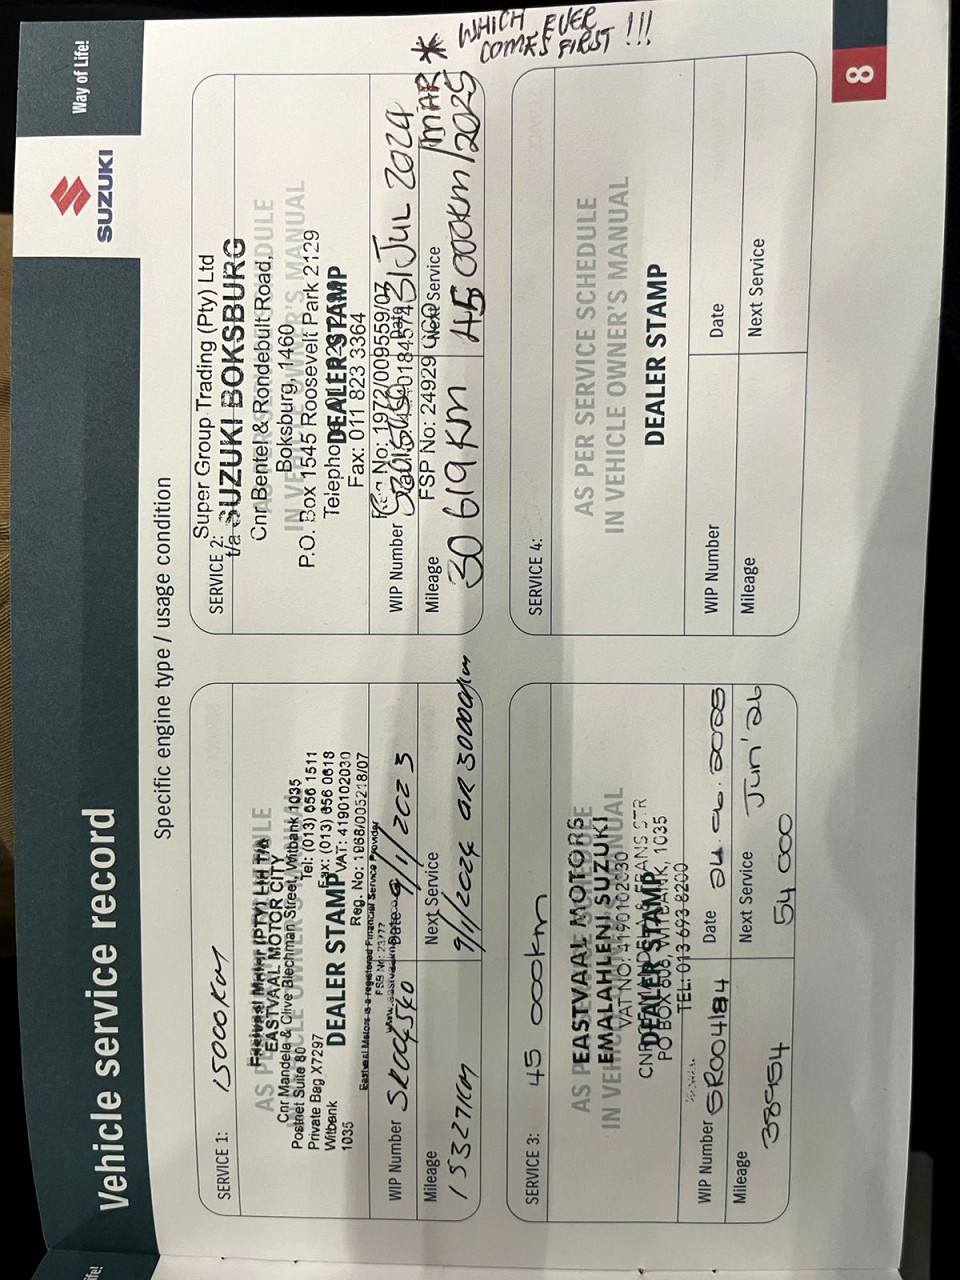 Vehicle service record
SUZUKI
Way of Life!
Specific engine type / usage condition
SERVICE 1: 15000KM
AS PER SERVICE SCHEDULE
IN VEHICLE OWNER'S MANUAL
DEALER STAMP
EASTVAAL MOTOR CITY
Cnr Mandela & Clive Blechman Street, Witbank 1035
Postnet Suite 80
Private Bag X7297
Witbank
1035
Tel: (013) 656 1511
Fax: (013) 656 0618
VAT: 4190102030
Reg. No: 1968/005218/07
Eastvaal Motors is a registered Financial Service Provider
WIP Number
Date 9/1/2023
Mileage 15327KM
Next Service 9/1/2024 OR 30000km
SERVICE 2:
Super Group Trading (Pty) Ltd
t/a SUZUKI BOKSBURG
Cnr Bentel & Rondebult Road,
Boksburg, 1460
P.O. Box 1545 Roosevelt Park 2129
DEALER STAMP
Fax: 011 823 3364
No: 1972/009559/07
FSP No: 24929
WIP Number
Date 31 JUL 2024
Mileage 30 619 KM
Next Service 45 000km / MAR 2025
* WHICH EVER
COMES FIRST !!!
SERVICE 3: 45 000km
AS PER SERVICE SCHEDULE
IN VEHICLE OWNER'S MANUAL
DEALER STAMP
EASTVAAL MOTORS
EMALAHLENI SUZUKI
VAT NO: 4190102030
PO BOX 606, WITBANK, 1035
TEL: 013 693 8200
WIP Number SR004184
Date 24.06.2025
Mileage 38954
Next Service Jun'26
54 000
SERVICE 4:
AS PER SERVICE SCHEDULE
IN VEHICLE OWNER'S MANUAL
DEALER STAMP
WIP Number
Date
Mileage
Next Service
8